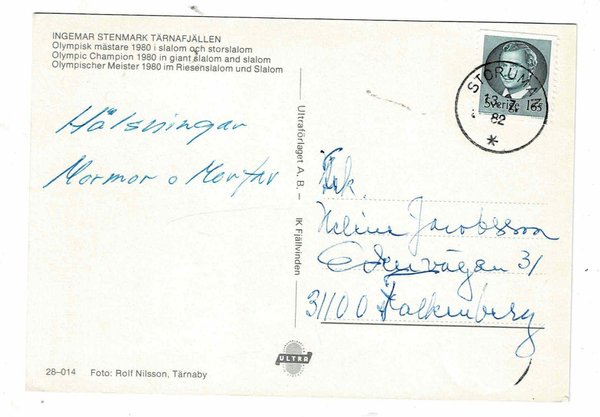 INGEMAR STENMARK TÄRNAFJÄLLEN
Olympisk mästare 1980 i slalom och storslalom
Olympic Champion 1980 in giant slalom and slalom
Olympischer Meister 1980 im Riesenslalom und Slalom
STORUMAN
13 7
82
Sverige 165
Hälsningar
Mormor o Morfar
Ultraförlaget A.B. – IK Fjällvinden
Frk.
Heline Jacobsson
31
31100 Falkenberg
ULTRA
28-014 Foto: Rolf Nilsson, Tärnaby